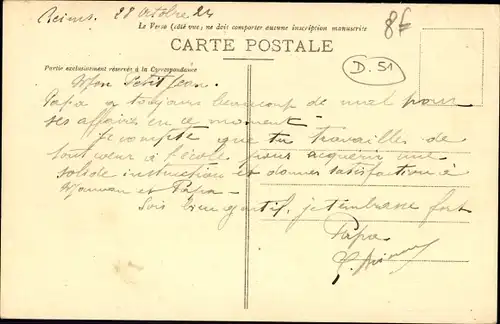 Reims. 28 Octobre 24
8F
Le Verso (côté vue) ne doit comporter aucune inscription manuscrite
CARTE POSTALE
D. 51
Partie exclusivement réservée à la Correspondance
Mon Petit Jean.
Papa a toujours beaucoup de mal pour
ses affaires en ce moment -
Je compte que tu travailles de
tout cœur à l'école pour acquérir une
solide instruction et donner satisfaction à
Maman et Papa -
Sois bien gentil, je t'embrasse fort
Papa